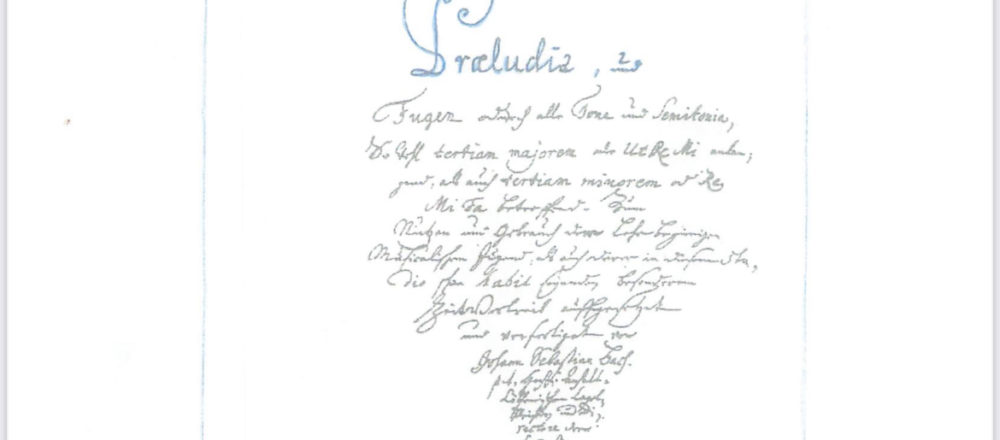 Præludia, und
Fugen durch alle Tone und Semitonia,
So wohl tertiam majorem oder Ut Re Mi anlan,
gend, als auch tertiam minorem od Re
Mi Fa betreffend. Zum
Nutzen und Gebrauch derer Lehrbegierigen
Musicalischen Jugend, als auch derer in diesem Stu,
dio schon habil seyenden besonderem
Zeitvertreib auffgesetzet
und verfertiget von
Johann Sebastian Bach.
p. t. Hochf. Anhalt-
Cöthenischen Capel,
Meistern und Di,
rectore derer